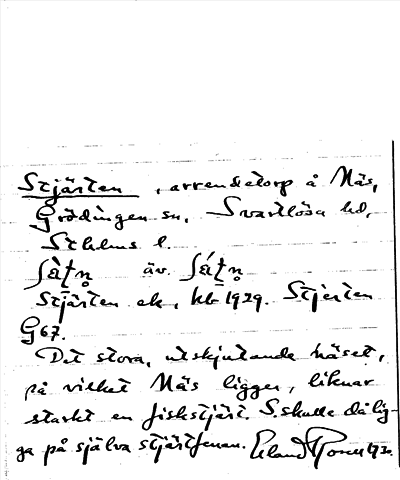 Stjärten, arrendetorp å Näs,
Grödingen sn, Svartlösa hd,
Sthlms l.
äv.
Stjärten ek, kb 1929. Stjerten
G67.
Det stora, utskjutande näset,
på vilket Näs ligger, liknar
starkt en fiskstjärt. S. skulle då lig-
ga på själva stjärtfenan. Erland Rosell